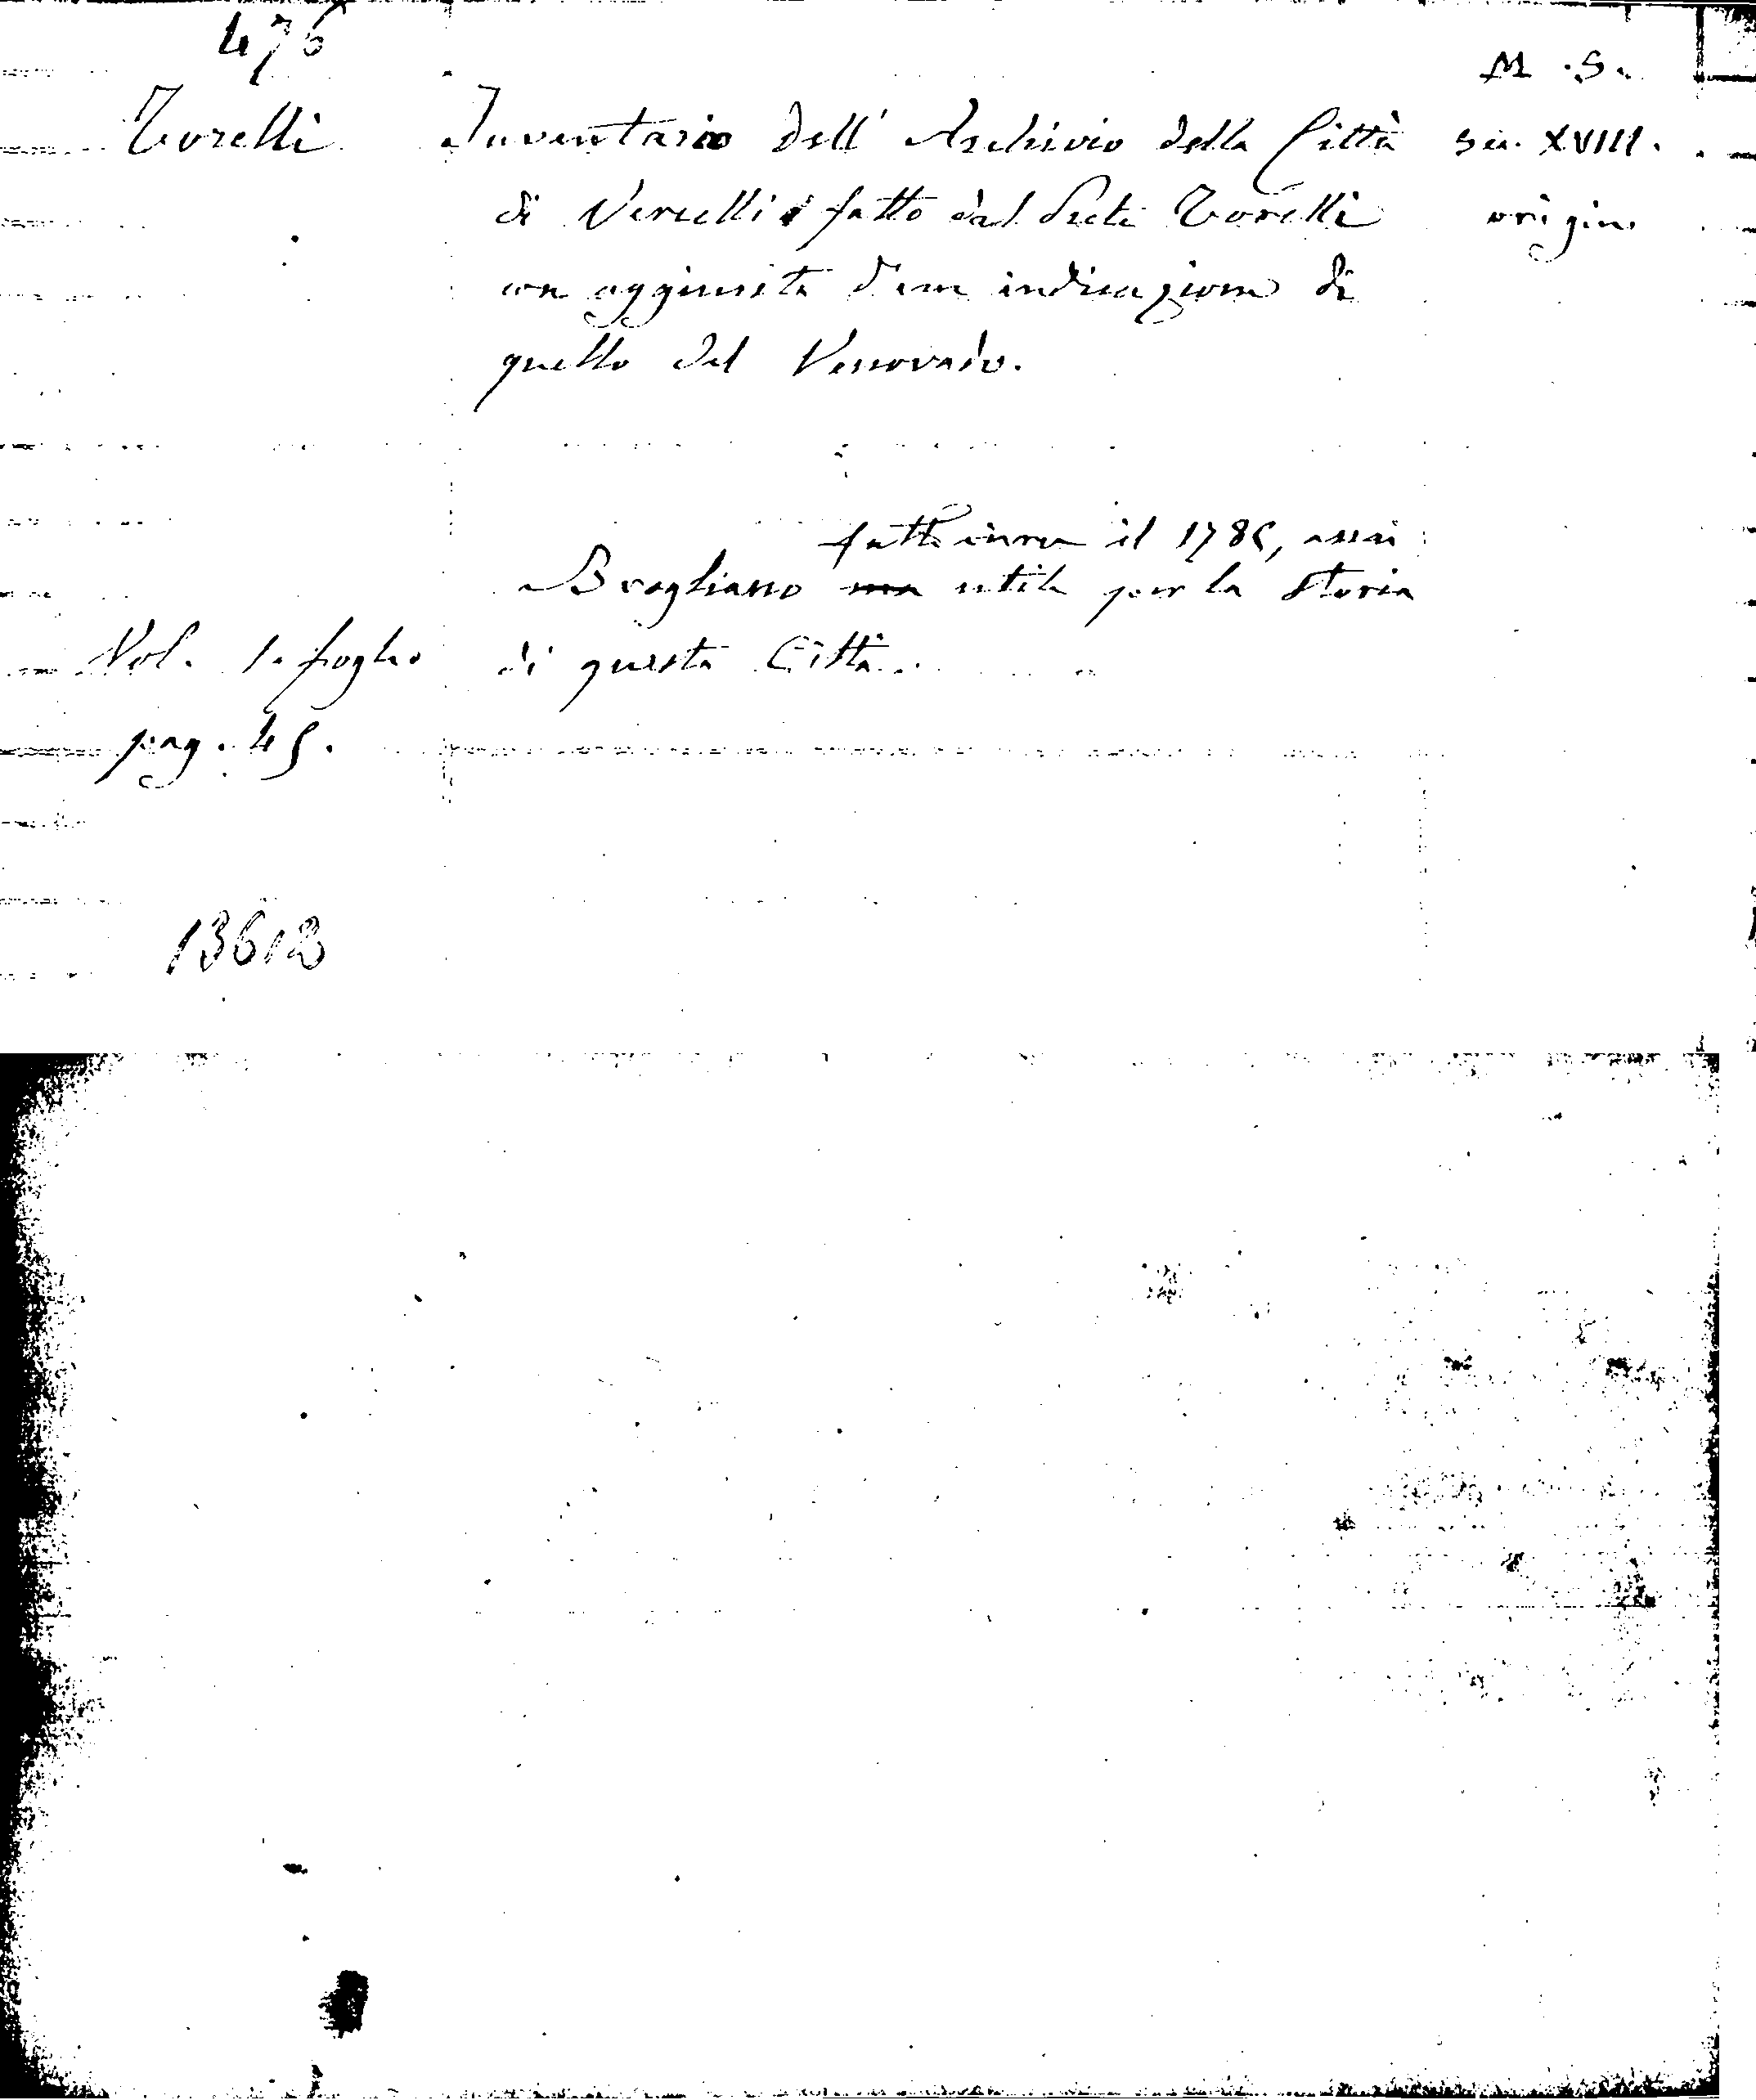 476
M. S.
Torelli Inventario dell' Archivio della Città sec. XVIII.
di Vercelli fatto dal Prete Torelli origin.
con aggiunta d'una indicazione di
quello del Vescovado.
fatto circa il 1785, assai
Brogliasso ma utile per la storia
Vol. 1. foglio di questa Città.
pag. 45.
13612